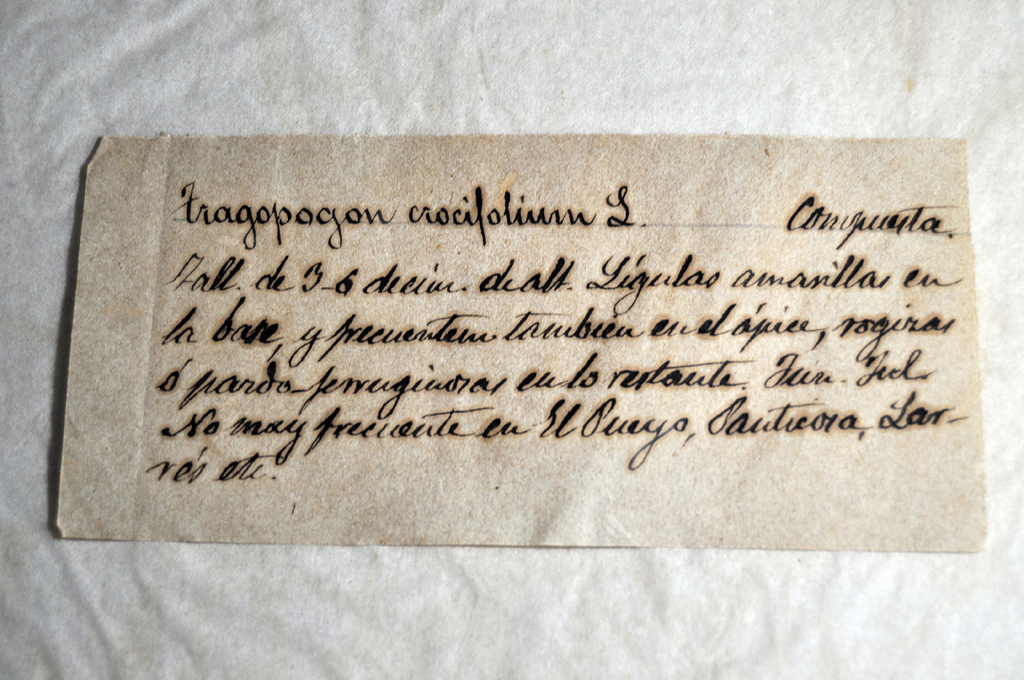 Tragopogon crocifolium L. Compuesta.
Tall. de 3-6 decím. de alt. Lígulas amarillas en
la base, y frecuentem también en el ápice, rogizas
ó pardo-ferruginosas en lo restante. Jun. Jul.
No muy frecuente en El Pueyo, Panticosa, Lar-
rés etc.